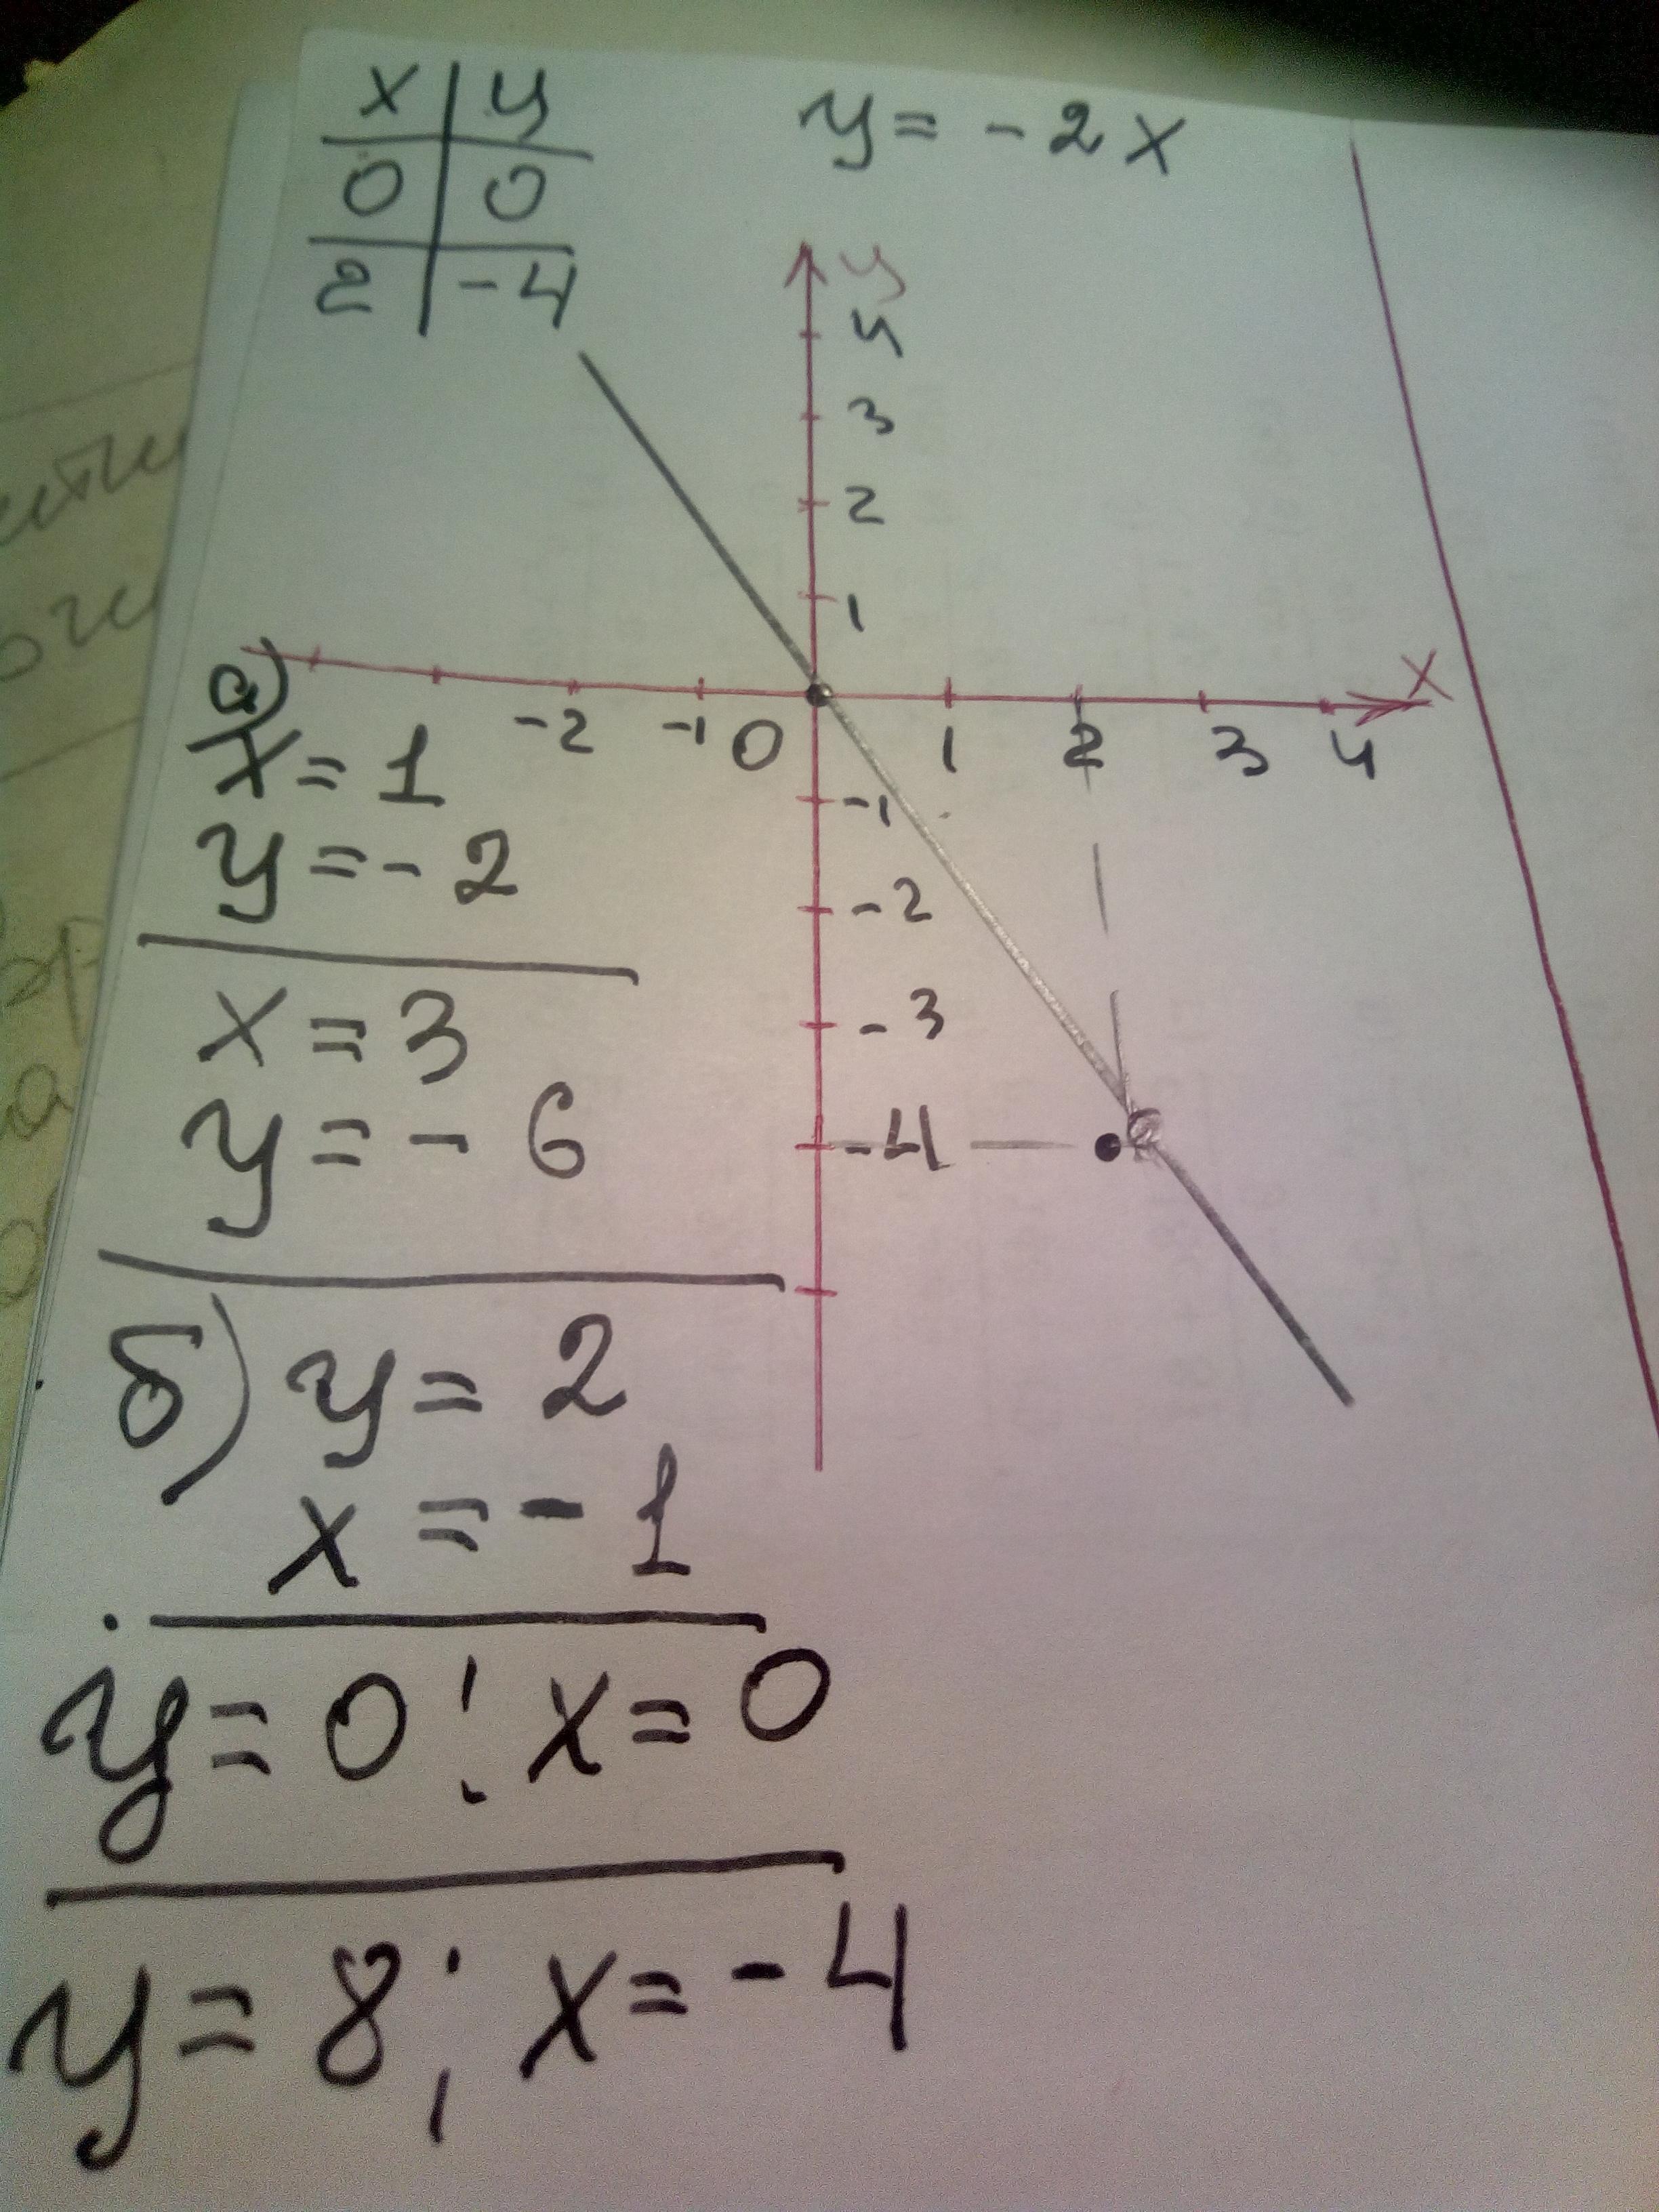 x | y
0 | 0
2 | -4
y = -2x
y
4
3
2
1
-2 -1 0 1 2 3 4 x
-1
-2
-3
-4
а)
x = 1
y = -2
x = 3
y = -6
б) y = 2
x = -1
y = 0; x = 0
y = 8; x = -4